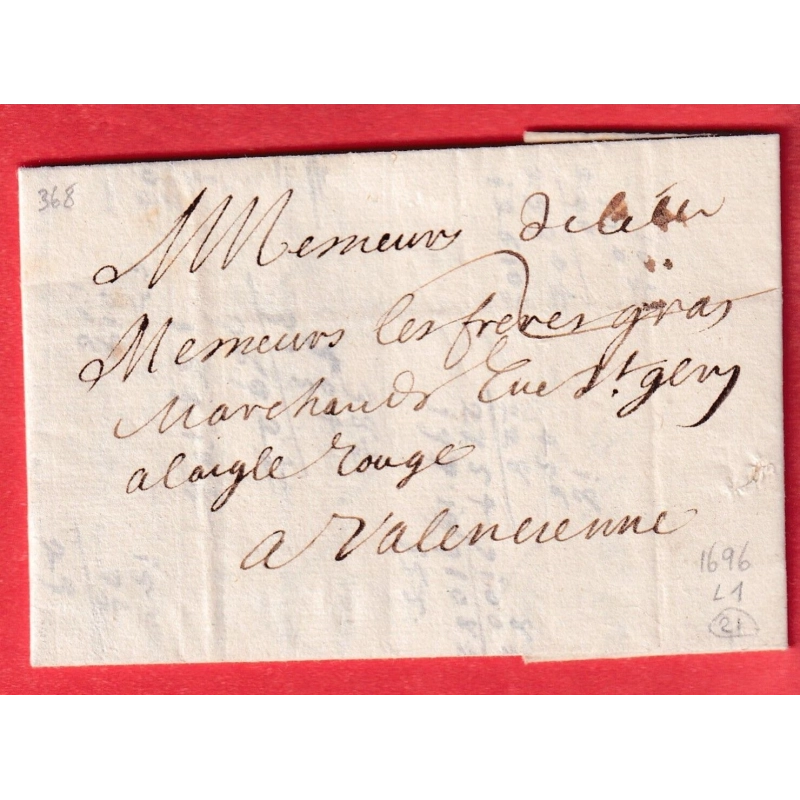 368
Messieurs
Messieurs les freres gras
Marchands Rue St. gery
a laigle rouge
a valencienne
1696
L1
21